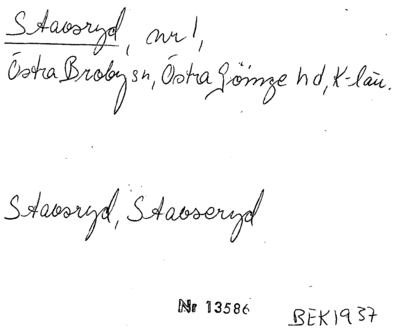 Stavsryd, nr 1,
Östra Broby sn, Östra Göinge hd, K-län.
Stavsryd, Stavseryd
Nr 13586 BEK1937